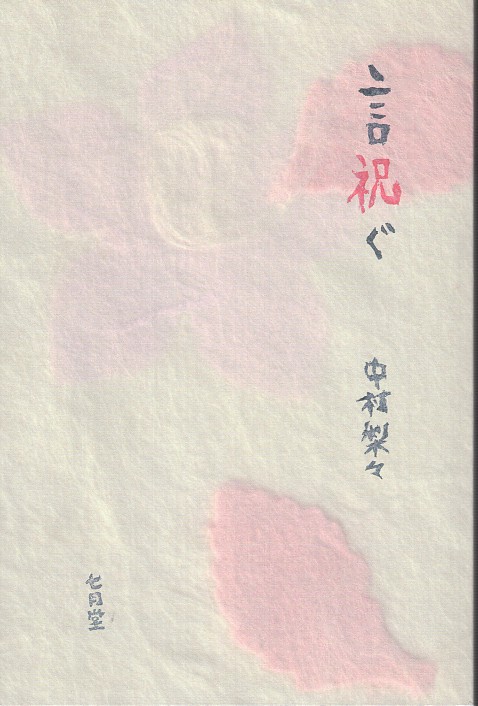 言祝ぐ
中村梨々
七月堂